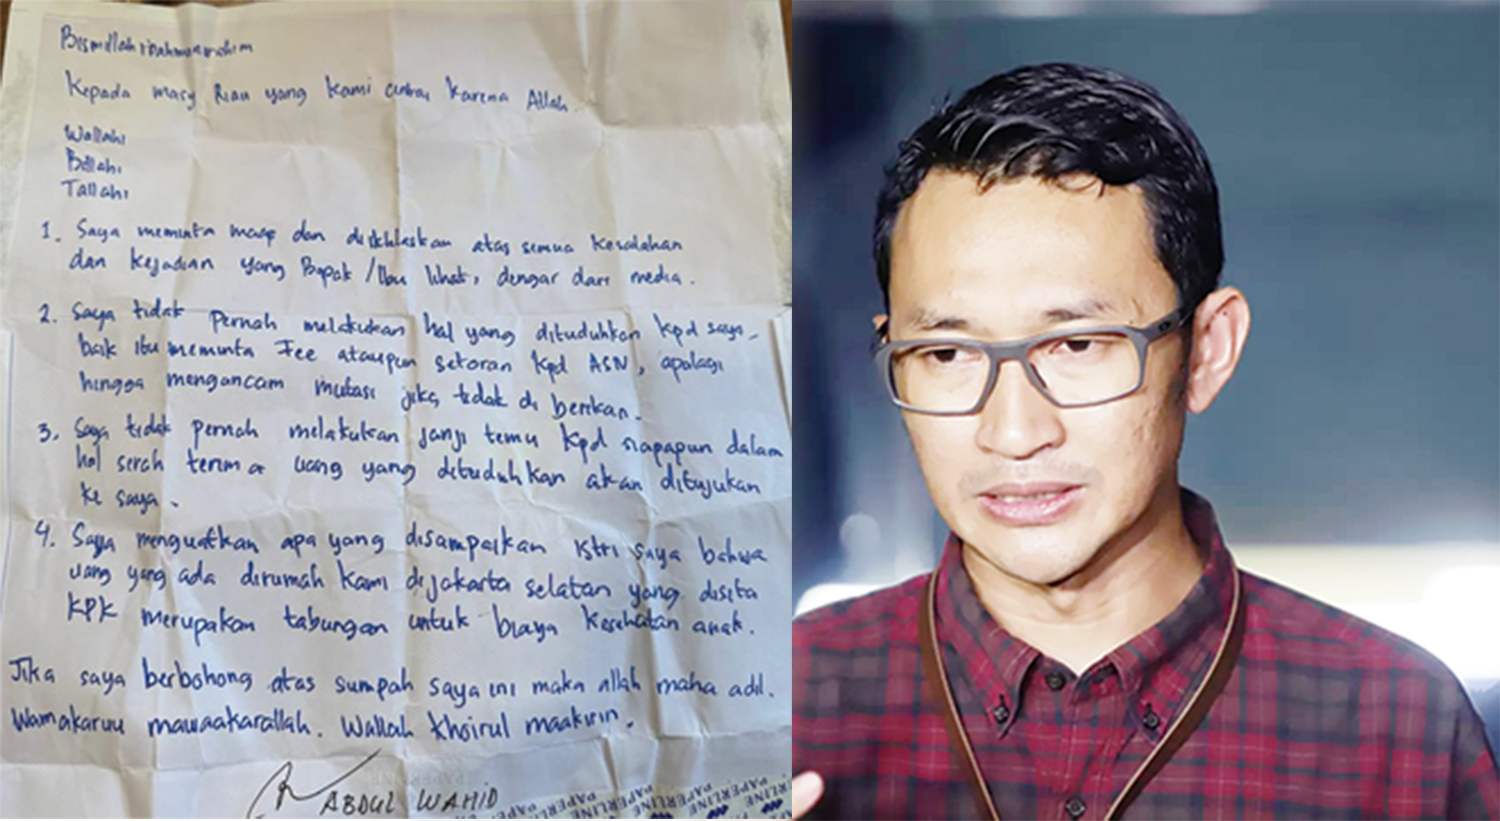 Bismillahirrahmanirahim
Kepada masy Riau yang kami cintai karena Allah.
Wallahi
Billahi
Tallahi
1. Saya meminta maaf dan diikhlaskan atas semua kesalahan
dan kejadian yang Bapak/Ibu lihat, dengar dari media.
2. Saya tidak pernah melakukan hal yang dituduhkan kpd saya,
baik itu meminta Fee ataupun setoran kpd ASN, apalagi
hingga mengancam mutasi jika tidak di berikan.
3. Saya tidak pernah melakukan janji temu kpd siapapun dalam
hal serah terima uang yang dituduhkan akan ditujukan
ke saya.
4. Saya menguatkan apa yang disampaikan istri saya bahwa
uang yang ada dirumah kami dijakarta selatan yang disita
KPK merupakan tabungan untuk biaya kesehatan anak.
Jika saya berbohong atas sumpah saya ini maka allah maha adil.
Wamakaruu mawaakarallah. Wallah khoirul maakirin.
ABDUL WAHID
PAPERLINE PAPERLINE PAPERLINE PAPERLINE